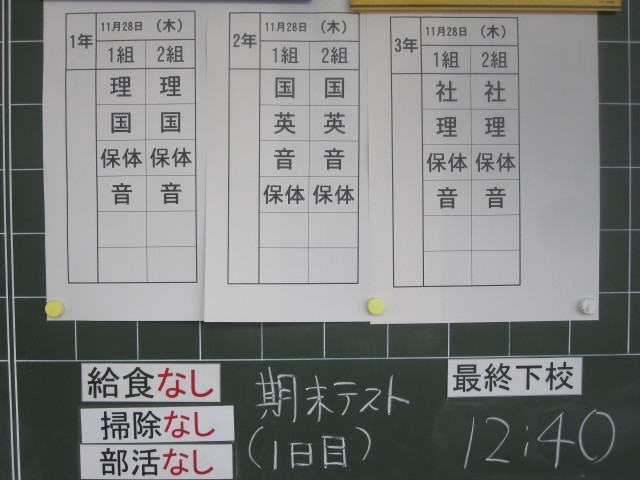 1年 11月28日 （木）
1組 2組
理 理
国 国
保体 保体
音 音
2年 11月28日 （木）
1組 2組
国 国
英 英
音 音
保体 保体
3年 11月28日 （木）
1組 2組
社 社
理 理
保体 保体
音 音
給食なし
掃除なし
部活なし
期末テスト
(1日目)
最終下校
12:40